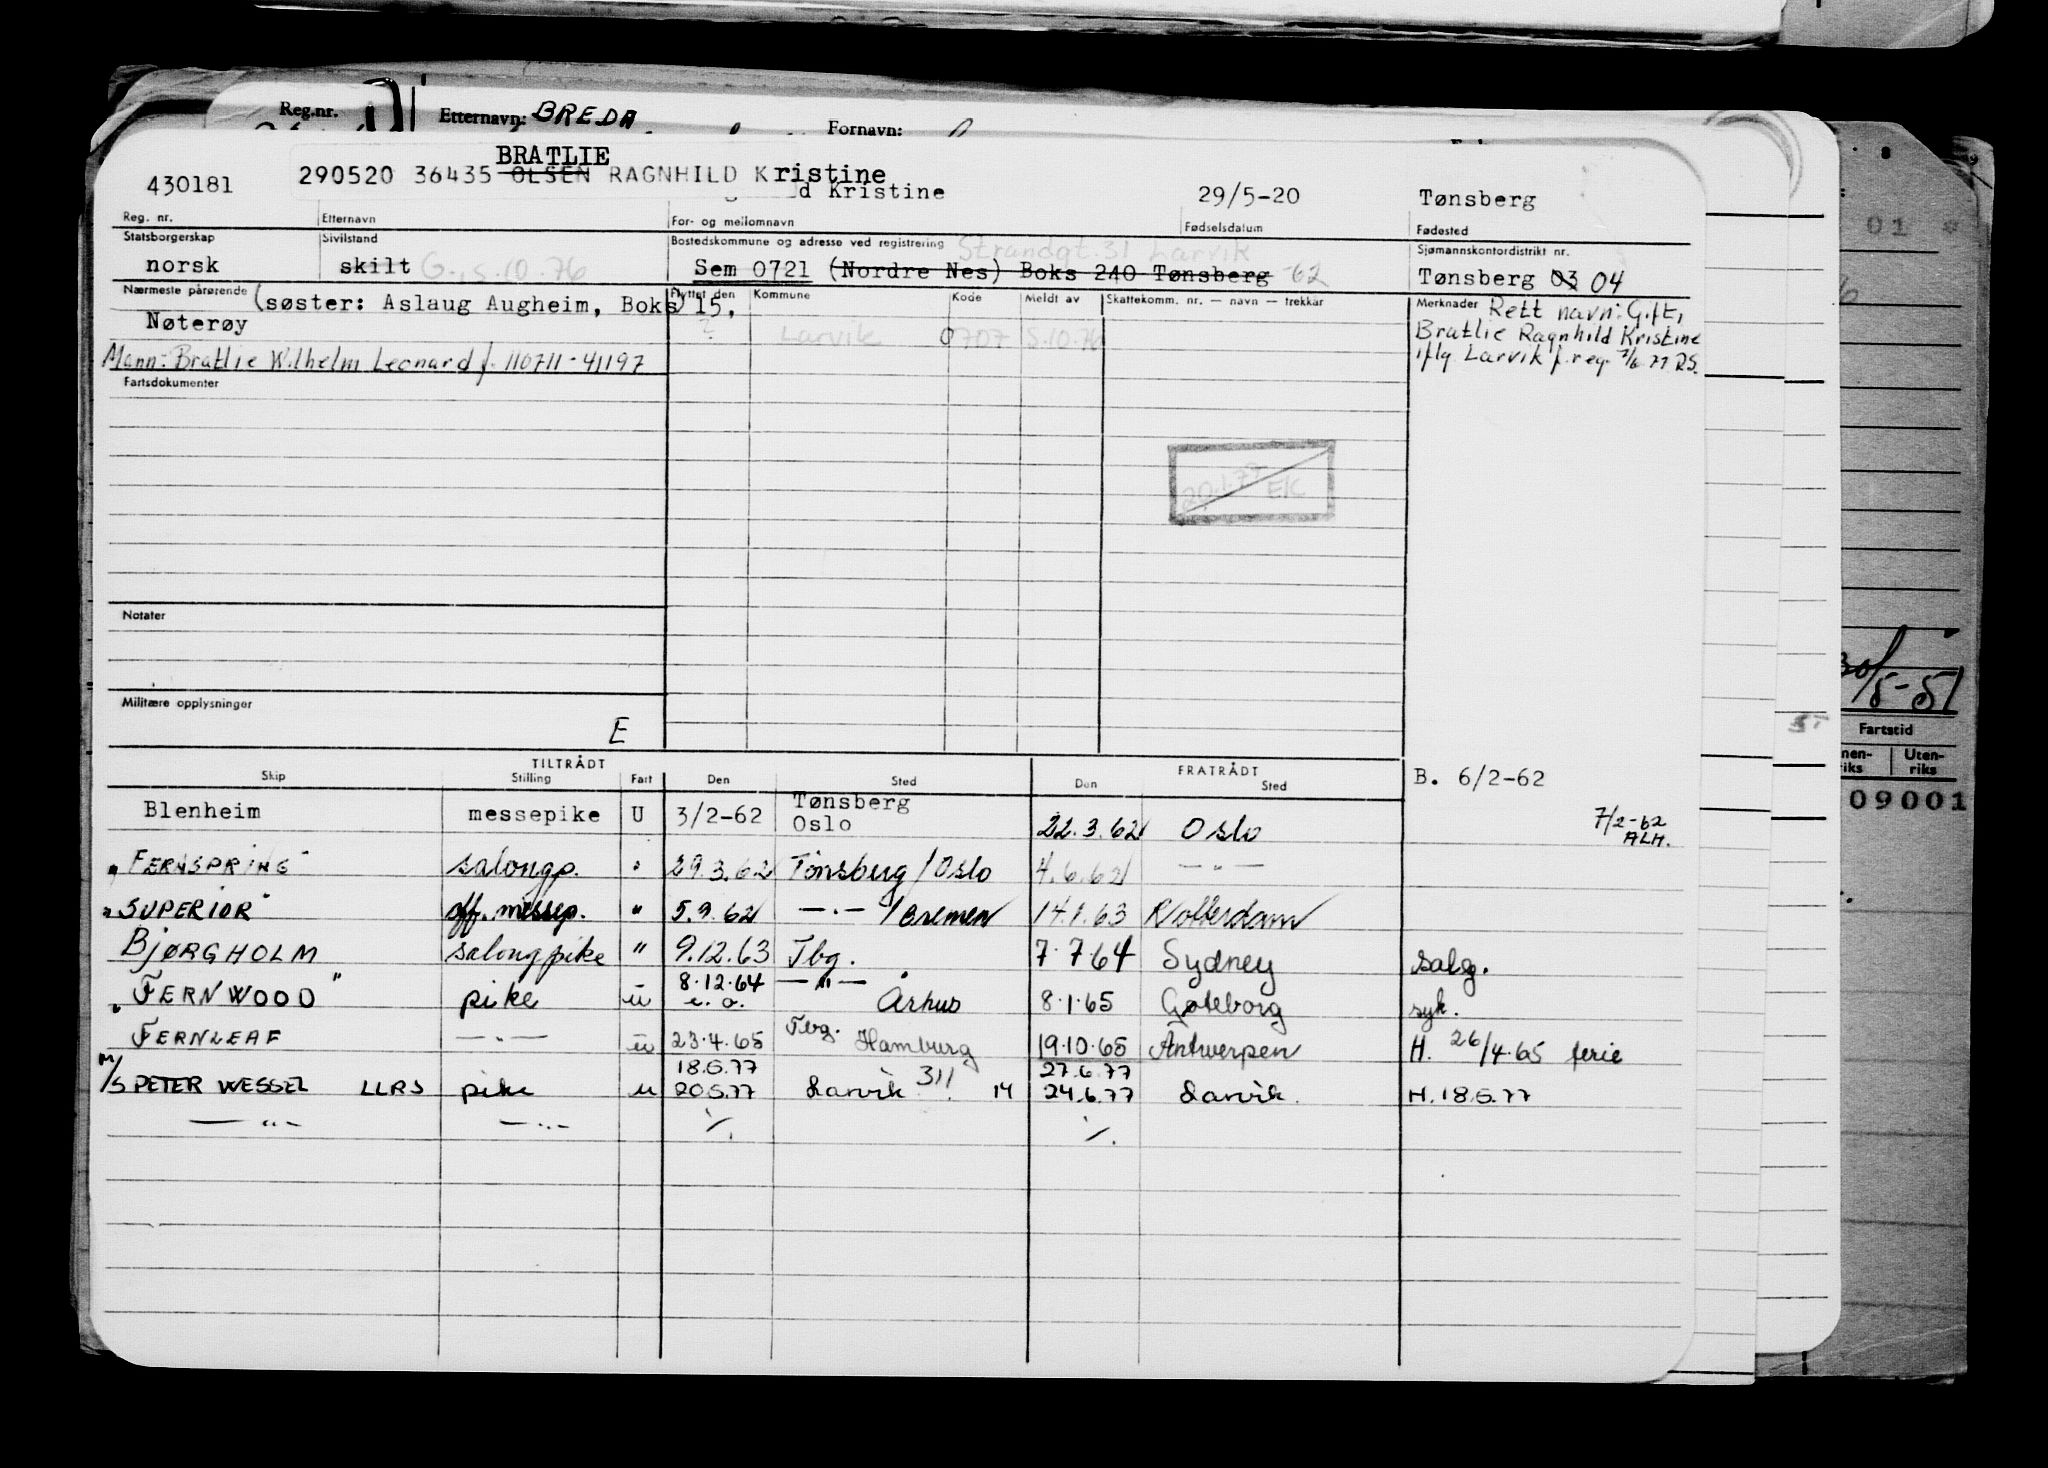 Reg.nr. Etternavn: BREDA Fornavn:
BRATLIE
430181 290520 36435 OLSEN RAGNHILD Kristine
d Kristine 29/5-20 Tønsberg
Reg. nr. Etternavn For- og mellomnavn Fødselsdatum Fødested
Statsborgerskap Sivilstand Bostedskommune og adresse ved registrering Strandgt. 31 Larvik Sjømannskontordistrikt nr.
norsk skilt G. 15.10.76 Sem 0721 (Nordre Nes) Boks 240 Tønsberg -62 Tønsberg 03 04
Nærmeste pårørende (søster: Aslaug Augheim, Boks 15, Flyttet den Kommune Kode Meldt av Skattekomm. nr. — navn — trekkar Merknader Rett navn: Gift,
Nøterøy ? Larvik 0707 15.10.76 Bratlie Ragnhild Kristine
Mann: Bratlie Wilhelm Leonard f. 110711-41197 iflg. Larvik f.reg. 7/6.77 RS.
Fartsdokumenter
20.1.77 EK
Notater
Militære opplysninger
E
TILTRÅDT FRATRÅDT
Skip Stilling Fart Den Sted Den Sted B. 6/2-62
Blenheim messepike U 3/2-62 Tønsberg Oslo 22.3.62 Oslo 7/2-62 ALH.
"FERNSPRING" salongp. " 29.3.62 Tønsberg/Oslo 4.6.62 — " —
"SUPERIOR" off. messep. " 5.9.62 — " — /Bremen 14.1.63 Rotterdam
BJØRGHOLM salongpike " 9.12.63 Tbg. 7.7.64 Sydney salg.
"FERNWOOD" pike u 8.12.64 e. o. — " — Århus 8.1.65 Gøteborg syk.
FERNLEAF — " — u 23.4.65 Tbg. Hamburg 19.10.65 Antwerpen H. 26/4.65 ferie
18.5.77 27.6.77
M/S PETER WESSEL LLRS pike u 20.5.77 Larvik 311 14 24.6.77 Larvik. H. 18.5.77
— " — — " — ./. ./.
30/5-51
Fartstid
Uten-
riks
09001
01